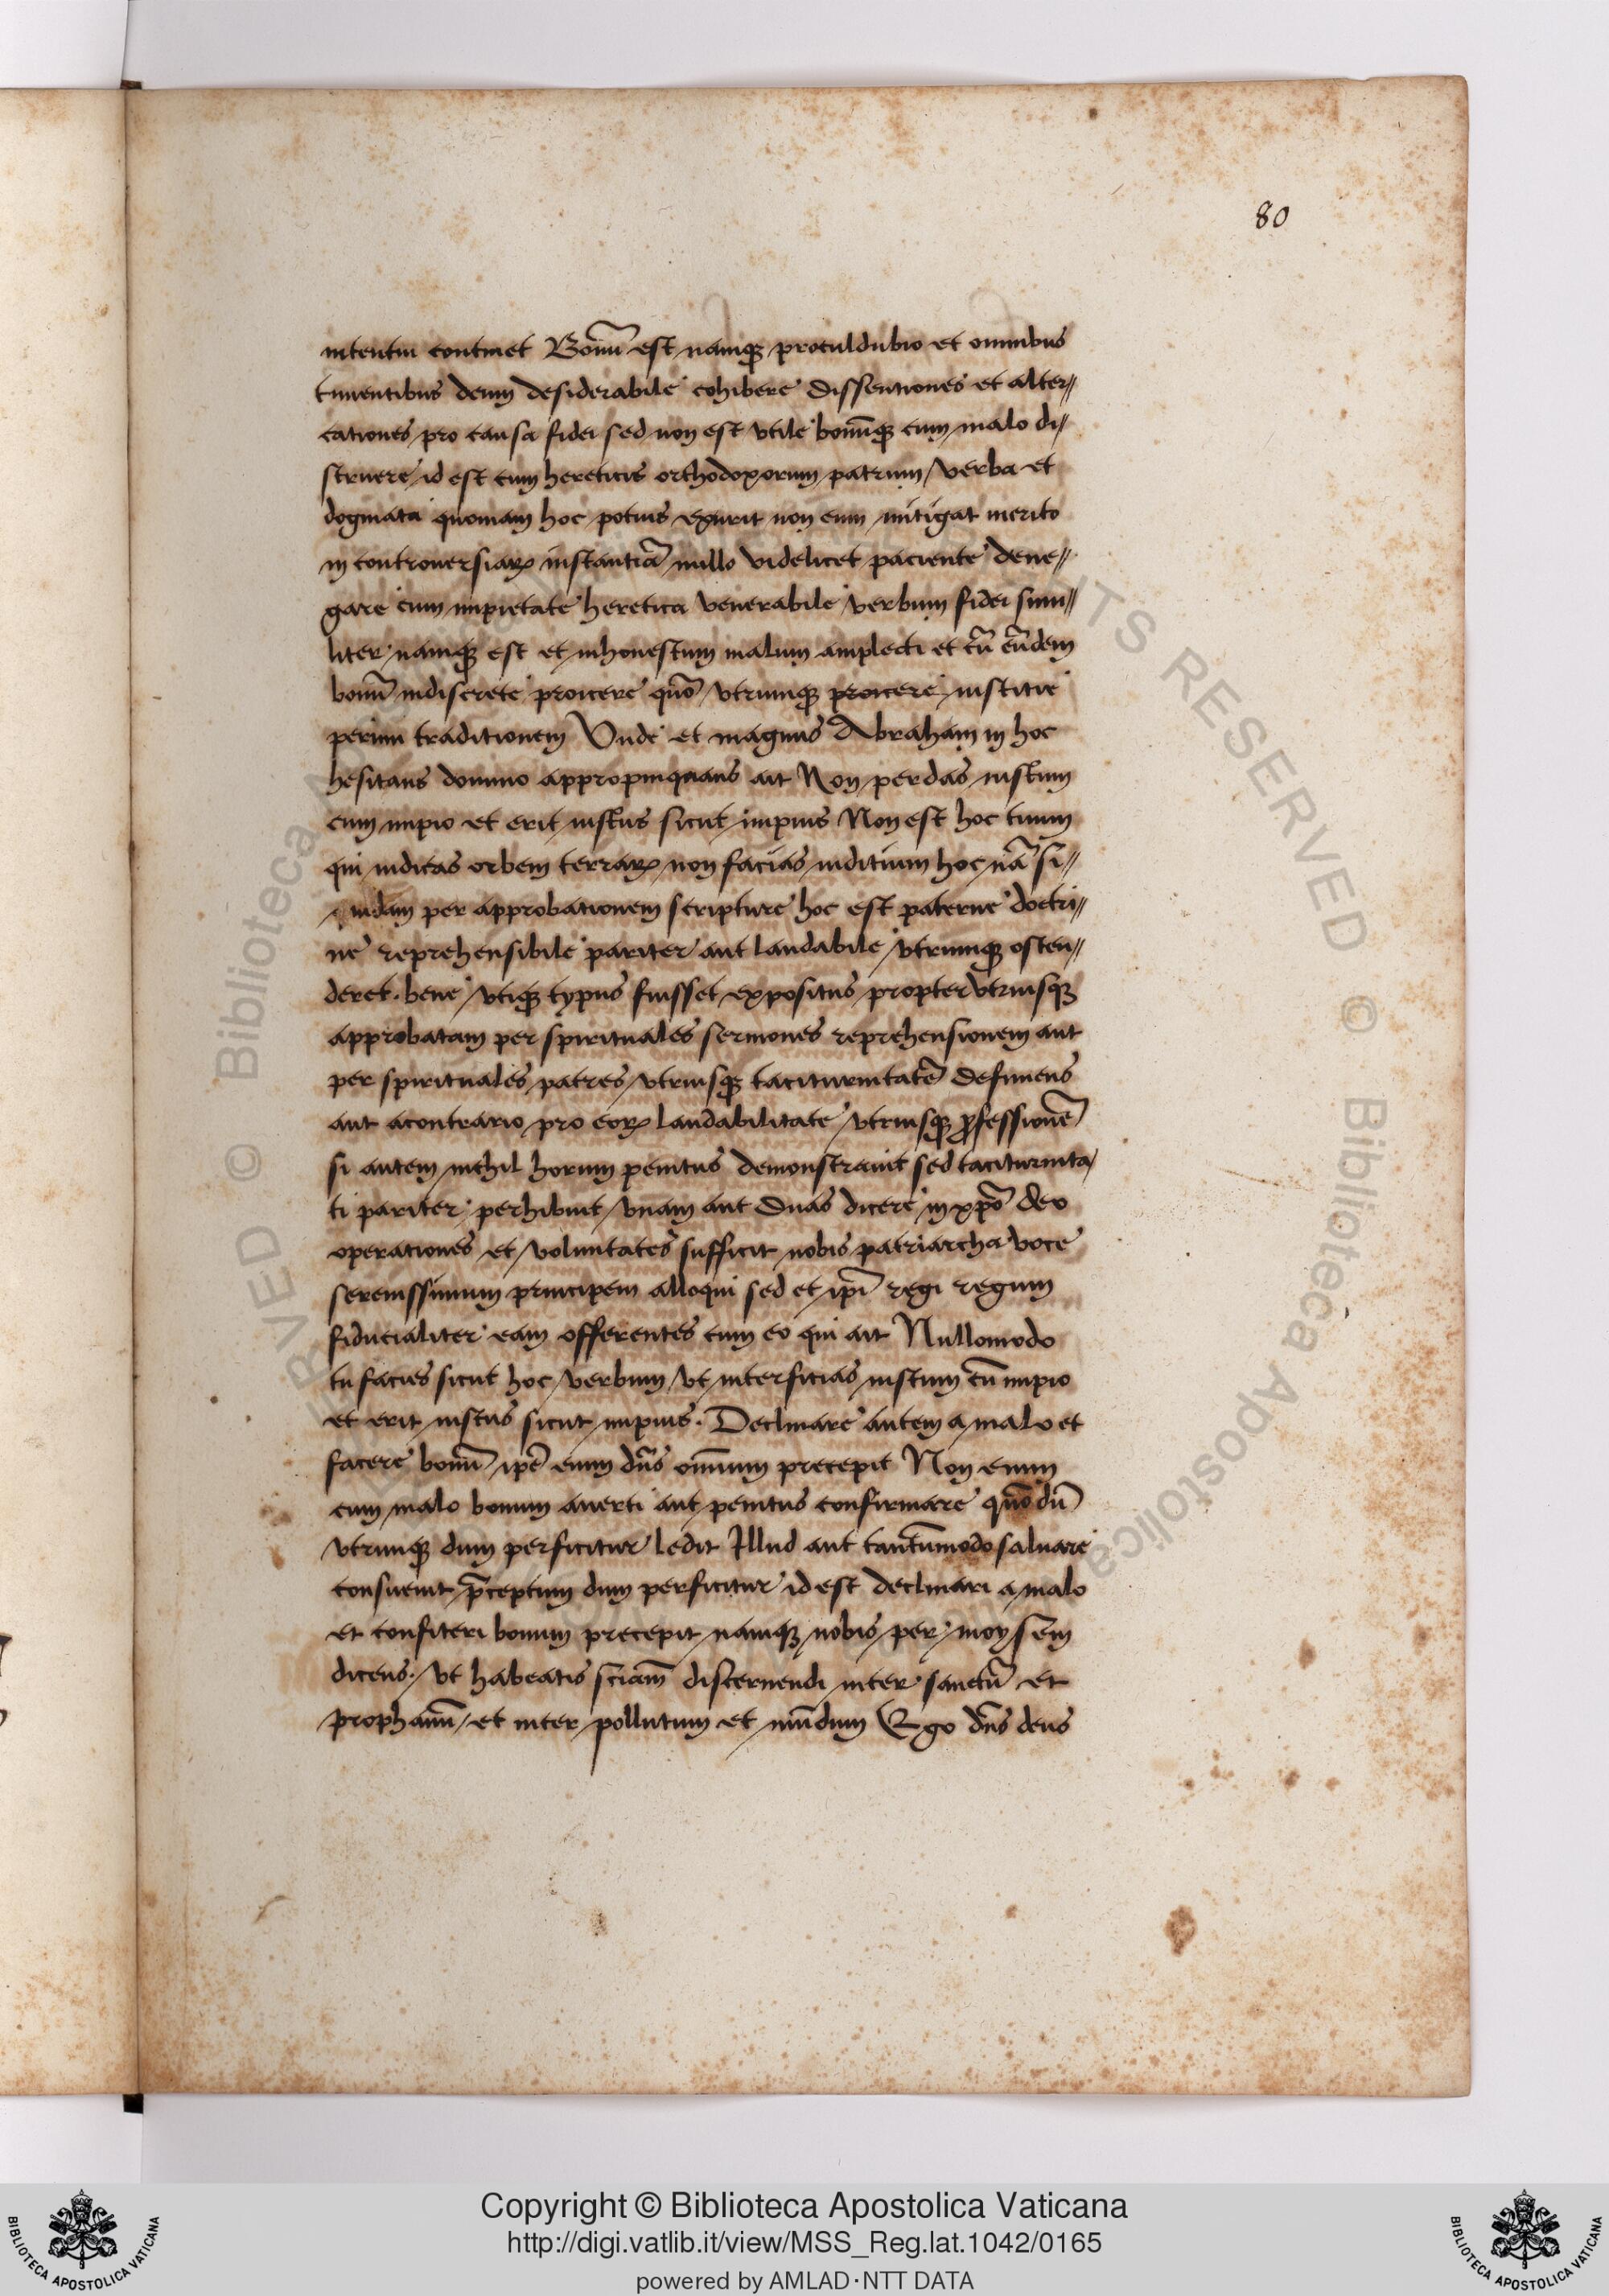 80
intentui continet Bonū est namq; proculdubio et omnibus
timentibus deum desiderabile cohibere dissentiones et alter//
cationes pro causa fidei sed non est vtile bonūq; cum malo di//
struere id est cum hereticis orthodoxorum patrum verba et
dogmata quoniam hoc potius exurit non eum mitigat merito
in controuersiaꝝ instantiā nullo videlicet paciente dene//
gare cum impietate heretica venerabile verbum fidei simi//
liter namq; est et inhonestum malum amplecti et cū eūdem
bonū indiscrete proicere quō vtrumq; proicere iustitie
perimi traditionem Vnde et magnus Abraham in hoc
hesitans domino appropinquans ait Non perdas iustum
cum impio et erit iustus sicut impius Non est hoc tuum
qui iudicas orbem terraꝝ non facias iuditium hoc nā si//
quidam per approbationem scripture hoc est paterne doctri//
ne reprehensibile pariter aut laudabile vtrumq; osten//
deret. bene vtiq; typus fuisset expositus propter vtriusq;
approbatam per spirituales sermones reprehensionem aut
per spirituales patres vtriusq; taciturnitatē definiens
aut acontrario pro eoꝝ laudabilitate vtriusq; ꝓfessionē
si autem nichil horum penitus demonstrauit sed taciturnita/
ti pariter perhibuit vnam aut duas dicere in xp̄o deo
operationes et voluntates sufficit nobis patriarcha voce
serenissimum principem alloqui sed et ip̄i regi regum
fiducialiter eam offerentes cum eo qui ait Nullomodo
tu facies sicut hoc verbum vt interficias iustum cū impio
et erit iustus sicut impius. Declinare autem a malo et
facere bonū ip̄e enim dn̄s omnium precepit Non enim
cum malo bonum auerti aut penitus confirmare quō dū
vtrumq; dum perficitur ledit Illud aut tantūmodo saluare
consueuit p̄ceptum dum perficitur id est declinari a malo
et confiteri bonum precepit namq; nobis per moysem
dicens. vt habeatis sciam̄ discernendi inter sanctū et
prophanū et inter pollutum et mūdum Ego dn̄s deus
Copyright © Biblioteca Apostolica Vaticana
http://digi.vatlib.it/view/MSS_Reg.lat.1042/0165
powered by AMLAD·NTT DATA